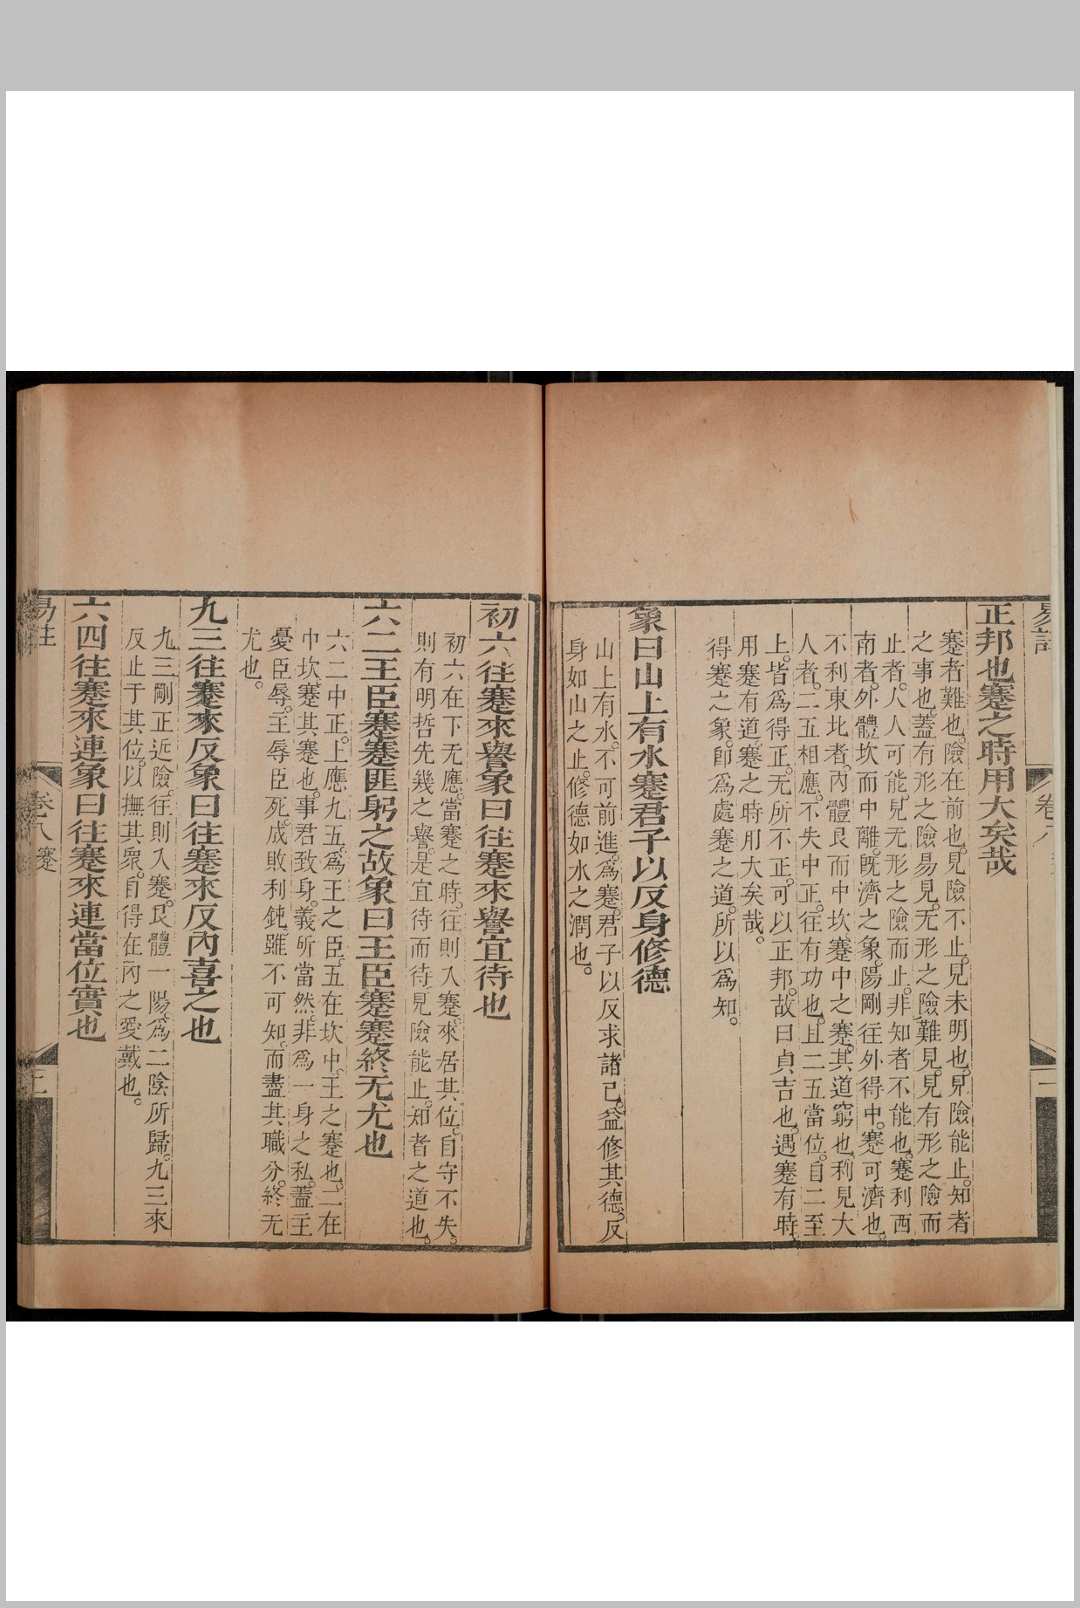 正邦也蹇之時用大矣哉
蹇者難也。險在前也。見險不止。見未明也。見險能止。知者
之事也。蓋有形之險易見。无形之險難見。見有形之險而
止者。人人可能。見无形之險而止。非知者不能也。蹇利西
南者。外體坎而中離。旣濟之象。陽剛往外得中。蹇可濟也。
不利東北者。內體艮而中坎。蹇中之蹇。其道窮也。利見大
人者。二五相應。不失中正。往有功也。且二五當位。自二至
上。皆爲得正。无所不正。可以正邦。故曰貞吉也。遇蹇有時。
用蹇有道。蹇之時用大矣哉。
得蹇之象。卽爲處蹇之道。所以爲知。
象曰山上有水蹇君子以反身修德
山上有水。不可前進。爲蹇。君子以反求諸己。益修其德。反
身如山之止。修德如水之潤也。
初六往蹇來譽象曰往蹇來譽宜待也
初六在下无應。當蹇之時。往則入蹇。來居其位。自守不失。
則有明哲先幾之譽。是宜待而待。見險能止。知者之道也。
六二王臣蹇蹇匪躬之故象曰王臣蹇蹇終无尤也
六二中正。上應九五。爲王之臣。五在坎中。王之蹇也。二在
中坎。蹇其蹇也。事君致身。義所當然。非爲一身之私。蓋主
憂臣辱。主辱臣死。成敗利鈍雖不可知。而盡其職分。終无
尤也。
九三往蹇來反象曰往蹇來反內喜之也
九三剛正近險。往則入蹇。艮體一陽。爲二陰所歸。九三來
反止于其位。以撫其衆。自得在內之愛戴也。
六四往蹇來連象曰往蹇來連當位實也
易註
卷八 蹇
二